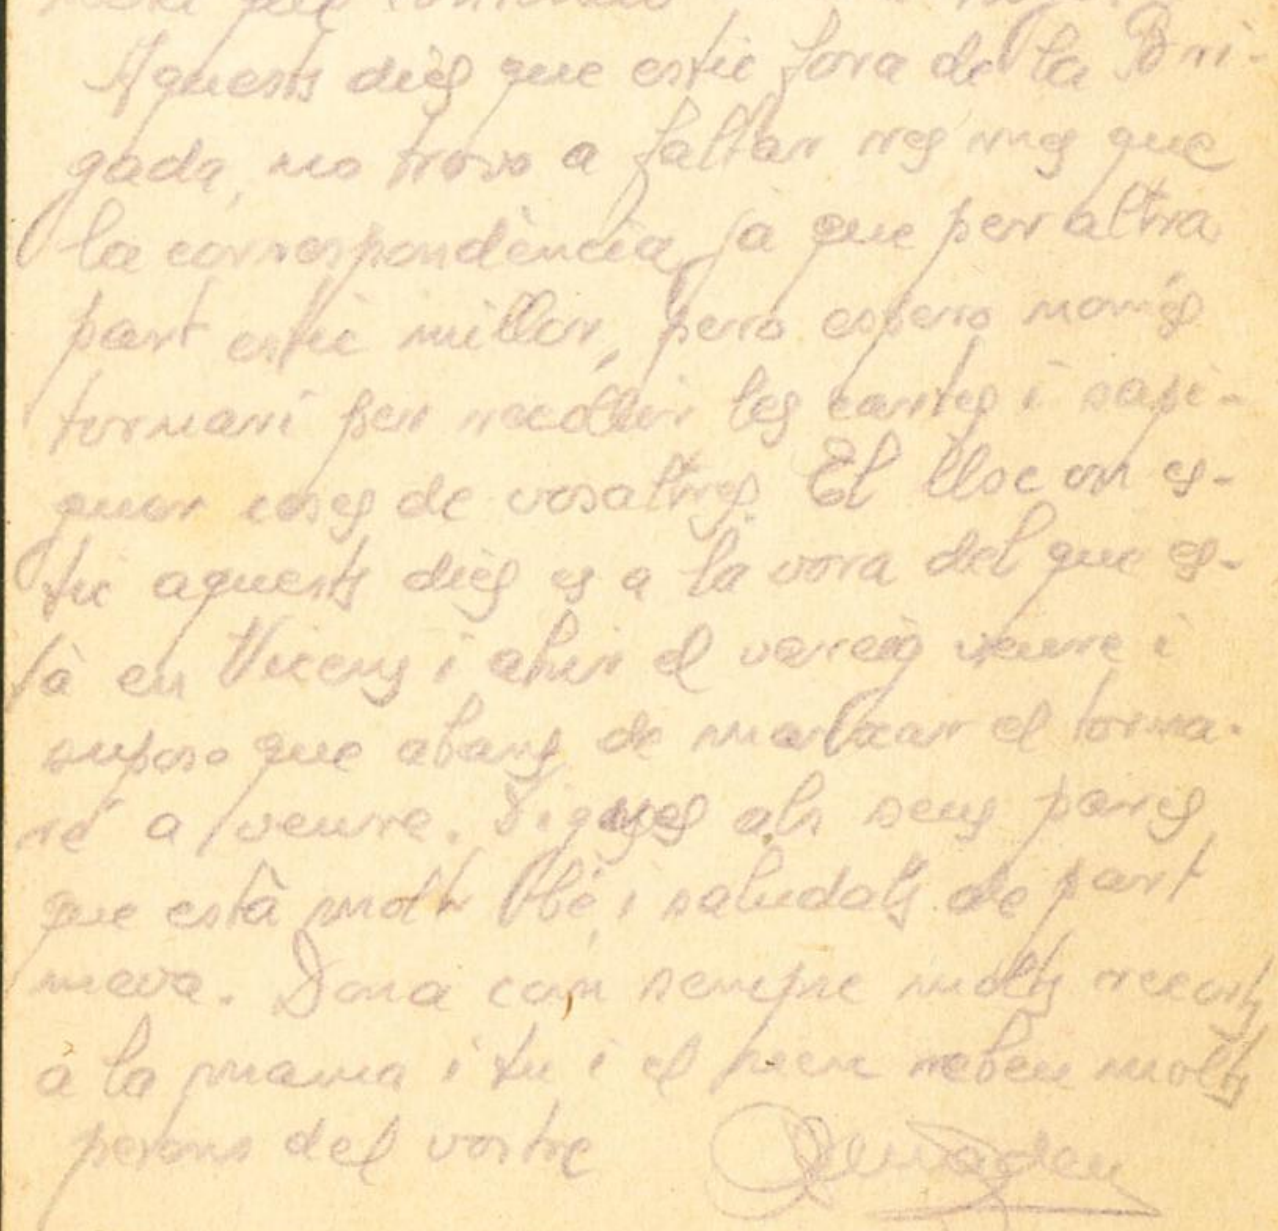 Aquests dies que estic fora de la Bri-
gada, no trovo a faltar res mes que
la correspondència, ja que per altra
part estic millor, pero espero només
tornari per recollir les cartes i sapi-
guer coses de vosaltres. El lloc on es-
tic aquests dies es a la vora del que es-
tà en Vicens i ahir el vareig veure i
suposo que abans de marxar el torna-
ré a veure. Digues als seus pares
que està molt bé, i saludals de part
meva. Dona com sempre molts recorts
a la mama i tu i el pere rebeu molts
petons del vostre